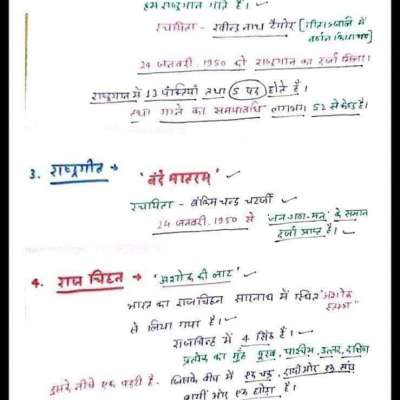 हम राष्ट्रगान गाते है।
रचयिता - रवीन्द्र नाथ टैगोर [गीतान्जली में
24 जनवरी, 1950 को राष्ट्रगान का दर्जा मिला।
राष्ट्रगान में 13 पंक्तियाँ तथा 5 पद होते है।
तथा गाने का समयावधि लगभग 52 सेकेण्ड है।
3. राष्ट्रगीत → 'वंदे मातरम्'
रचयिता - बंकिम चन्द्र चटर्जी
24 जनवरी, 1950 से 'जन-गण-मन' के समान
दर्जा प्राप्त है।
4. राज चिह्न → 'अशोक की लाट'
भारत का राजचिह्न सारनाथ में स्थित "अशोक
से लिया गया है।
राजचिन्ह में 4 सिंह है।
प्रत्येक का मुँह पूरब, पाश्चिम, उत्तर, दक्षिण
इसके नीचे एक पट्टी है. जिसके बीच में एक चक्र, दायीं ओर एक सांड
बायीं ओर एक घोड़ा है।